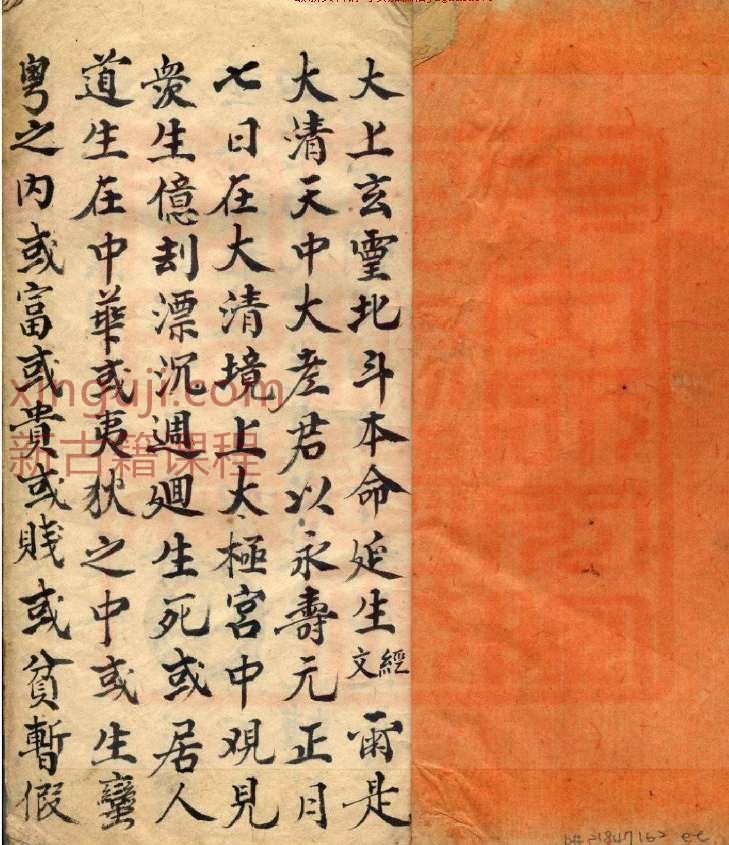 大上玄䨩北斗本命延生經文 爾是
大清天中大老君以永壽元正月
七日在大清境上大極宮中观見
眾生億刦漂沉週廻生死或居人
道生在中華或夷狄之中或生蠻
粤之内或富或貴或賤或貧暫假
xinguji.com
新古籍课程